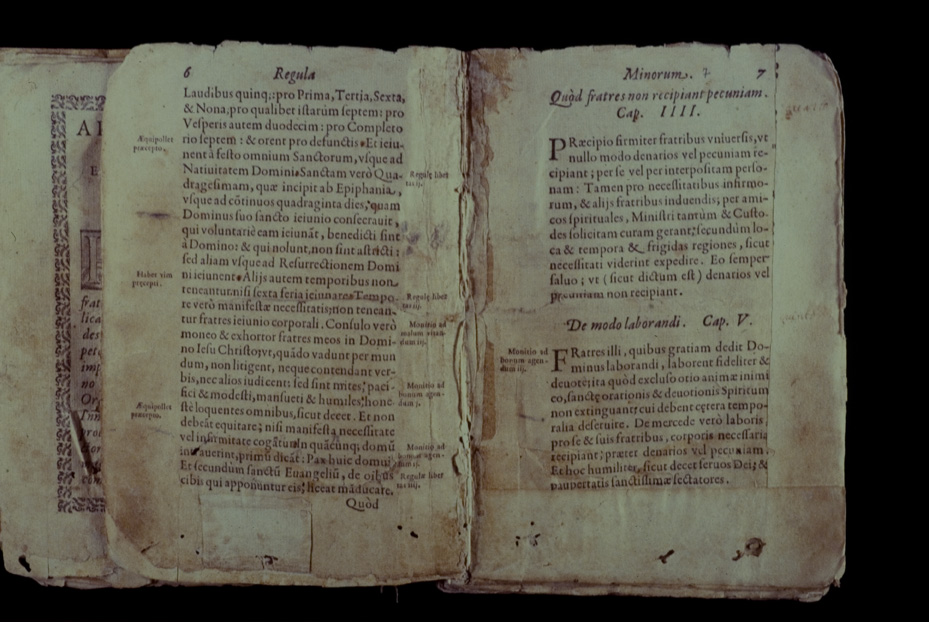 6 Regula
Laudibus quinq;: pro Prima, Tertia, Sexta,
& Nona, pro qualibet istarum septem: pro
Vesperis autem duodecim: pro Completo
rio septem: & orent pro defunctis. Et ieiu-
nent à festo omnium Sanctorum, vsque ad
Natiuitatem Domini. Sanctam verò Qua-
dragesimam, quæ incipit ab Epiphania,
vsque ad cõtinuos quadraginta dies, quam
Dominus suo sancto ieiunio consecrauit,
qui voluntariè eam ieiunãt, benedicti sint
à Domino: & qui nolunt, non sint astricti:
sed aliam vsque ad Resurrectionem Domi
ni ieiunent. Alijs autem temporibus non
teneantur: nisi sexta feria ieiunare. Tempo-
re verò manifestæ necessitatis; non tenean-
tur fratres ieiunio corporali. Consulo verò
moneo & exhortor fratres meos in Domi-
no Iesu Christo, vt, quãdo vadunt per mun
dum, non litigent, neque contendant ver-
bis, nec alios iudicent: sed sint mites, paci-
fici & modesti, mansueti & humiles, hone-
stè loquentes omnibus, sicut decet. Et non
debeãt equitare; nisi manifesta necessitate
vel infirmitate cogãtur. In quãcunq; domũ
intrauerint, primũ dicãt: Pax huic domui,
Et secundum sanctũ Euangeliũ, de oĩbus
cibis qui apponuntur eis, liceat mãducare.
Quòd
Æquipollet
præcepto.
Habet vim
præcepti.
Æquipollet
præcepto.
Regulę liber
tas ij.
Regulę liber
tas iij.
Monitio ad
malum vitan-
dum iij.
Monitio ad
bonum agen-
dum j.
Monitio ad
bonum agen-
dum ij.
Regulæ liber
tas iiij.
Minorum. 7
Quòd fratres non recipiant pecuniam.
Cap. IIII.
PRæcipio firmiter fratribus vniuersis, vt
nullo modo denarios vel pecuniam re-
cipiant; per se vel per interpositam perso-
nam: Tamen pro necessitatibus infirmo-
rum, & alijs fratribus induendis; per ami-
cos spirituales, Ministri tantùm & Custo-
des solicitam curam gerant; secundùm lo-
ca & tempora & frigidas regiones, sicut
necessitati viderint expedire. Eo semper
saluo; vt (sicut dictum est) denarios vel
pecuniam non recipiant.
De modo laborandi. Cap. V.
Monitio ad
bonum agen-
dum iij.
FRatres illi, quibus gratiam dedit Do-
minus laborandi, laborent fideliter &
deuotè; ita quòd excluso otio animæ inimi
co, sanctę orationis & deuotionis Spiritum
non extinguant; cui debent cętera tempo-
ralia deseruire. De mercede verò laboris,
pro se & suis fratribus, corporis necessaria
recipiant; præter denarios vel pecuniam.
Et hoc humiliter, sicut decet seruos Dei; &
paupertatis sanctissimæ sectatores.